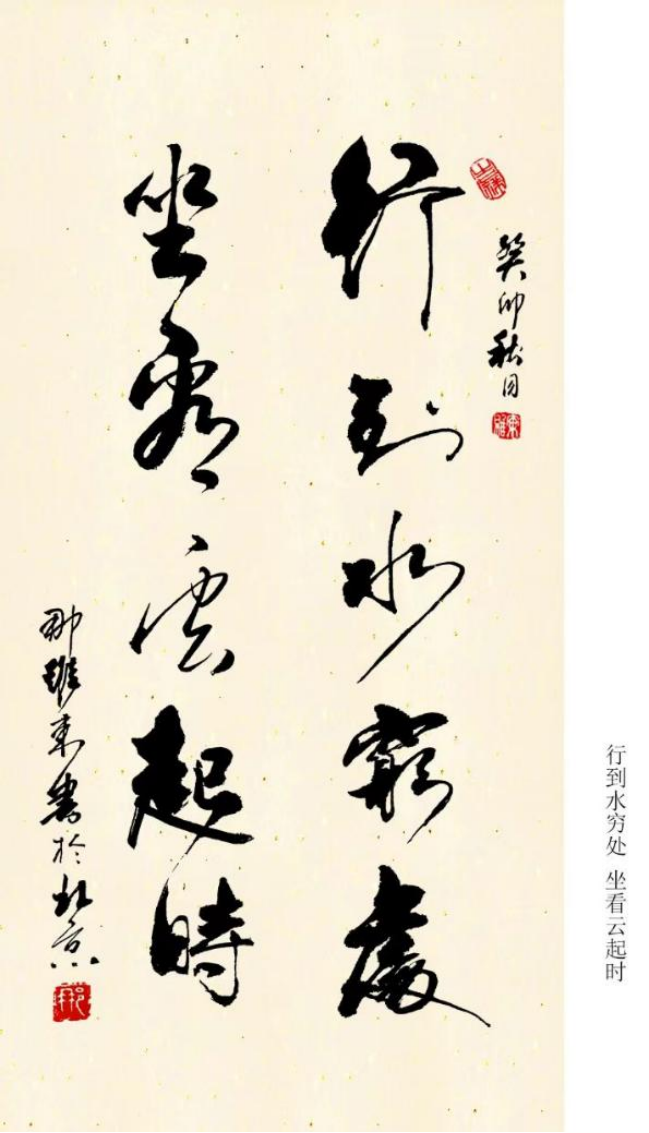 癸卯秋月
行到水窮處
坐看雲起時
邢維東書於北京
行到水穷处 坐看云起时